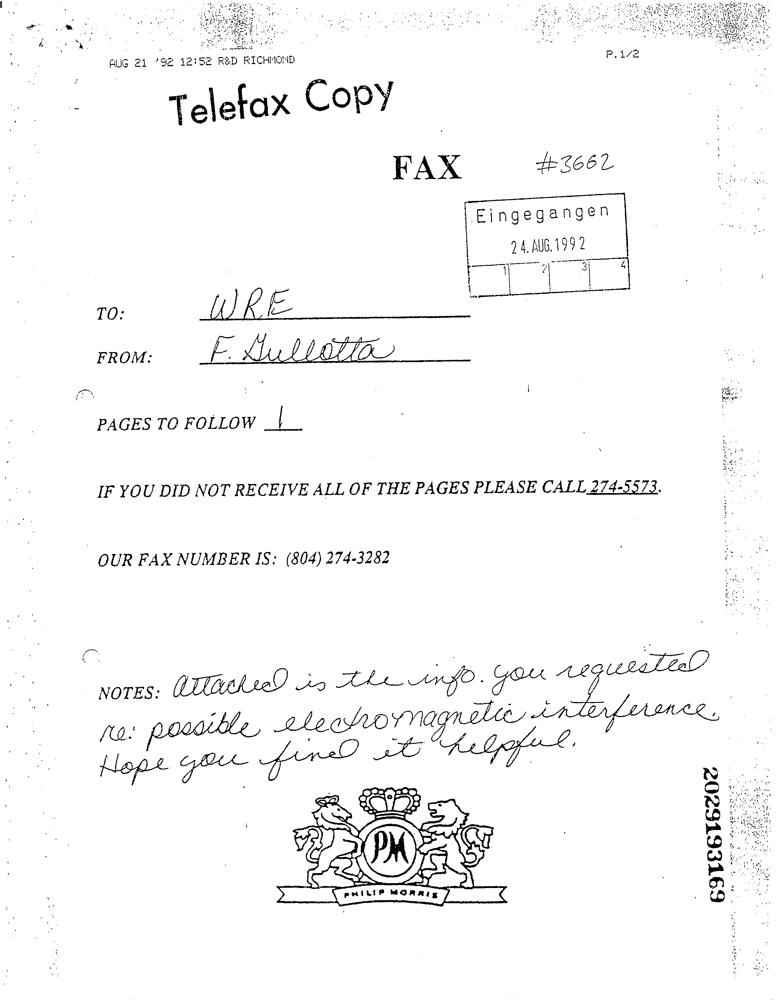 AUG 21 '92 12:52 R&D RICHMOND P.1/2
Telefax Copy
FAX #3662
Eingegangen
24.AUG.1992
1 2 3 4
TO: WRE
FROM: F. Gullotta
PAGES TO FOLLOW 1
IF YOU DID NOT RECEIVE ALL OF THE PAGES PLEASE CALL 274-5573.
OUR FAX NUMBER IS: (804) 274-3282
NOTES: Attached is the info. you requested
re: possible electromagnetic interference.
Hope you find it helpful.
PM
PHILIP MORRIS
2029193169